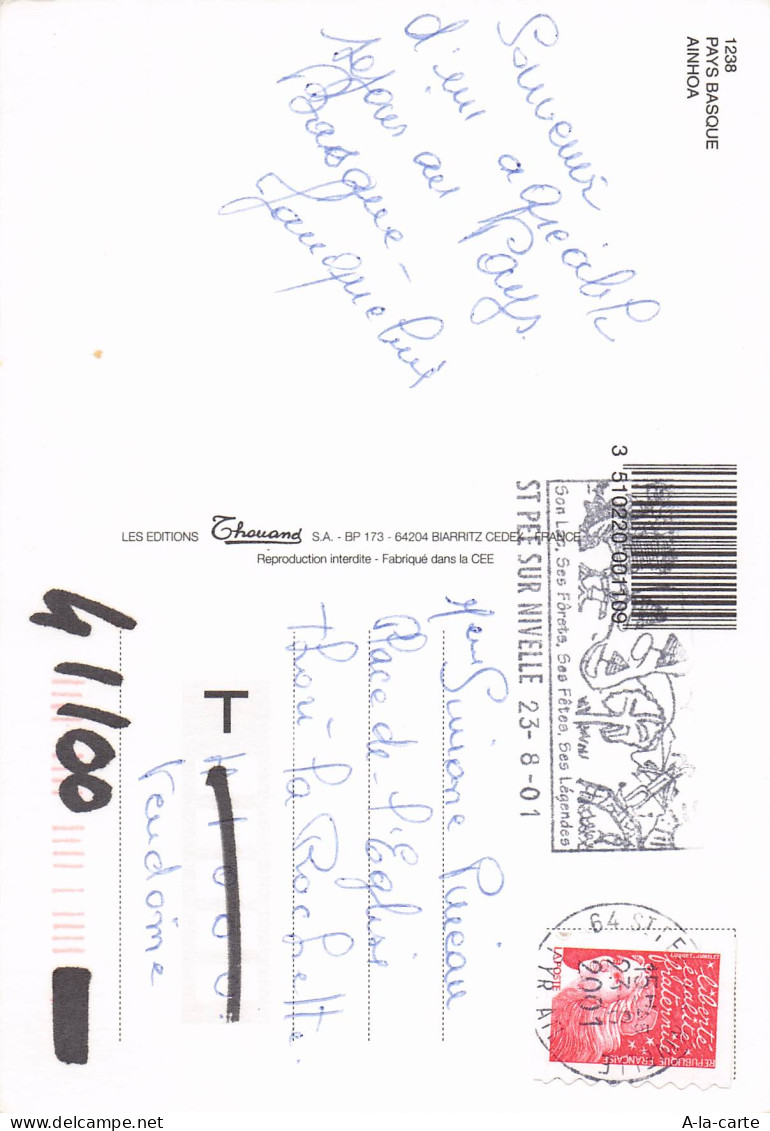 1238
PAYS BASQUE
AINHOA
Souvenir
d'un agréable
séjour au Pays
Basque -
Jacqueline
3 510220 001109
LES EDITIONS Thouand S.A. - BP 173 - 64204 BIARRITZ CEDEX - FRANCE
Reproduction interdite - Fabriqué dans la CEE
Son Lac, Ses Fôrets, Ses Fêtes, Ses Légendes
ST PEE SUR NIVELLE 23-8-01
64 ST PEE
15H
23
2001
LA POSTE
Liberté
égalité
fraternité
RÉPUBLIQUE FRANÇAISE
Simone
Place de l'Eglise
Thoré la Rochette
T
Vendôme
41100
A-la-carte